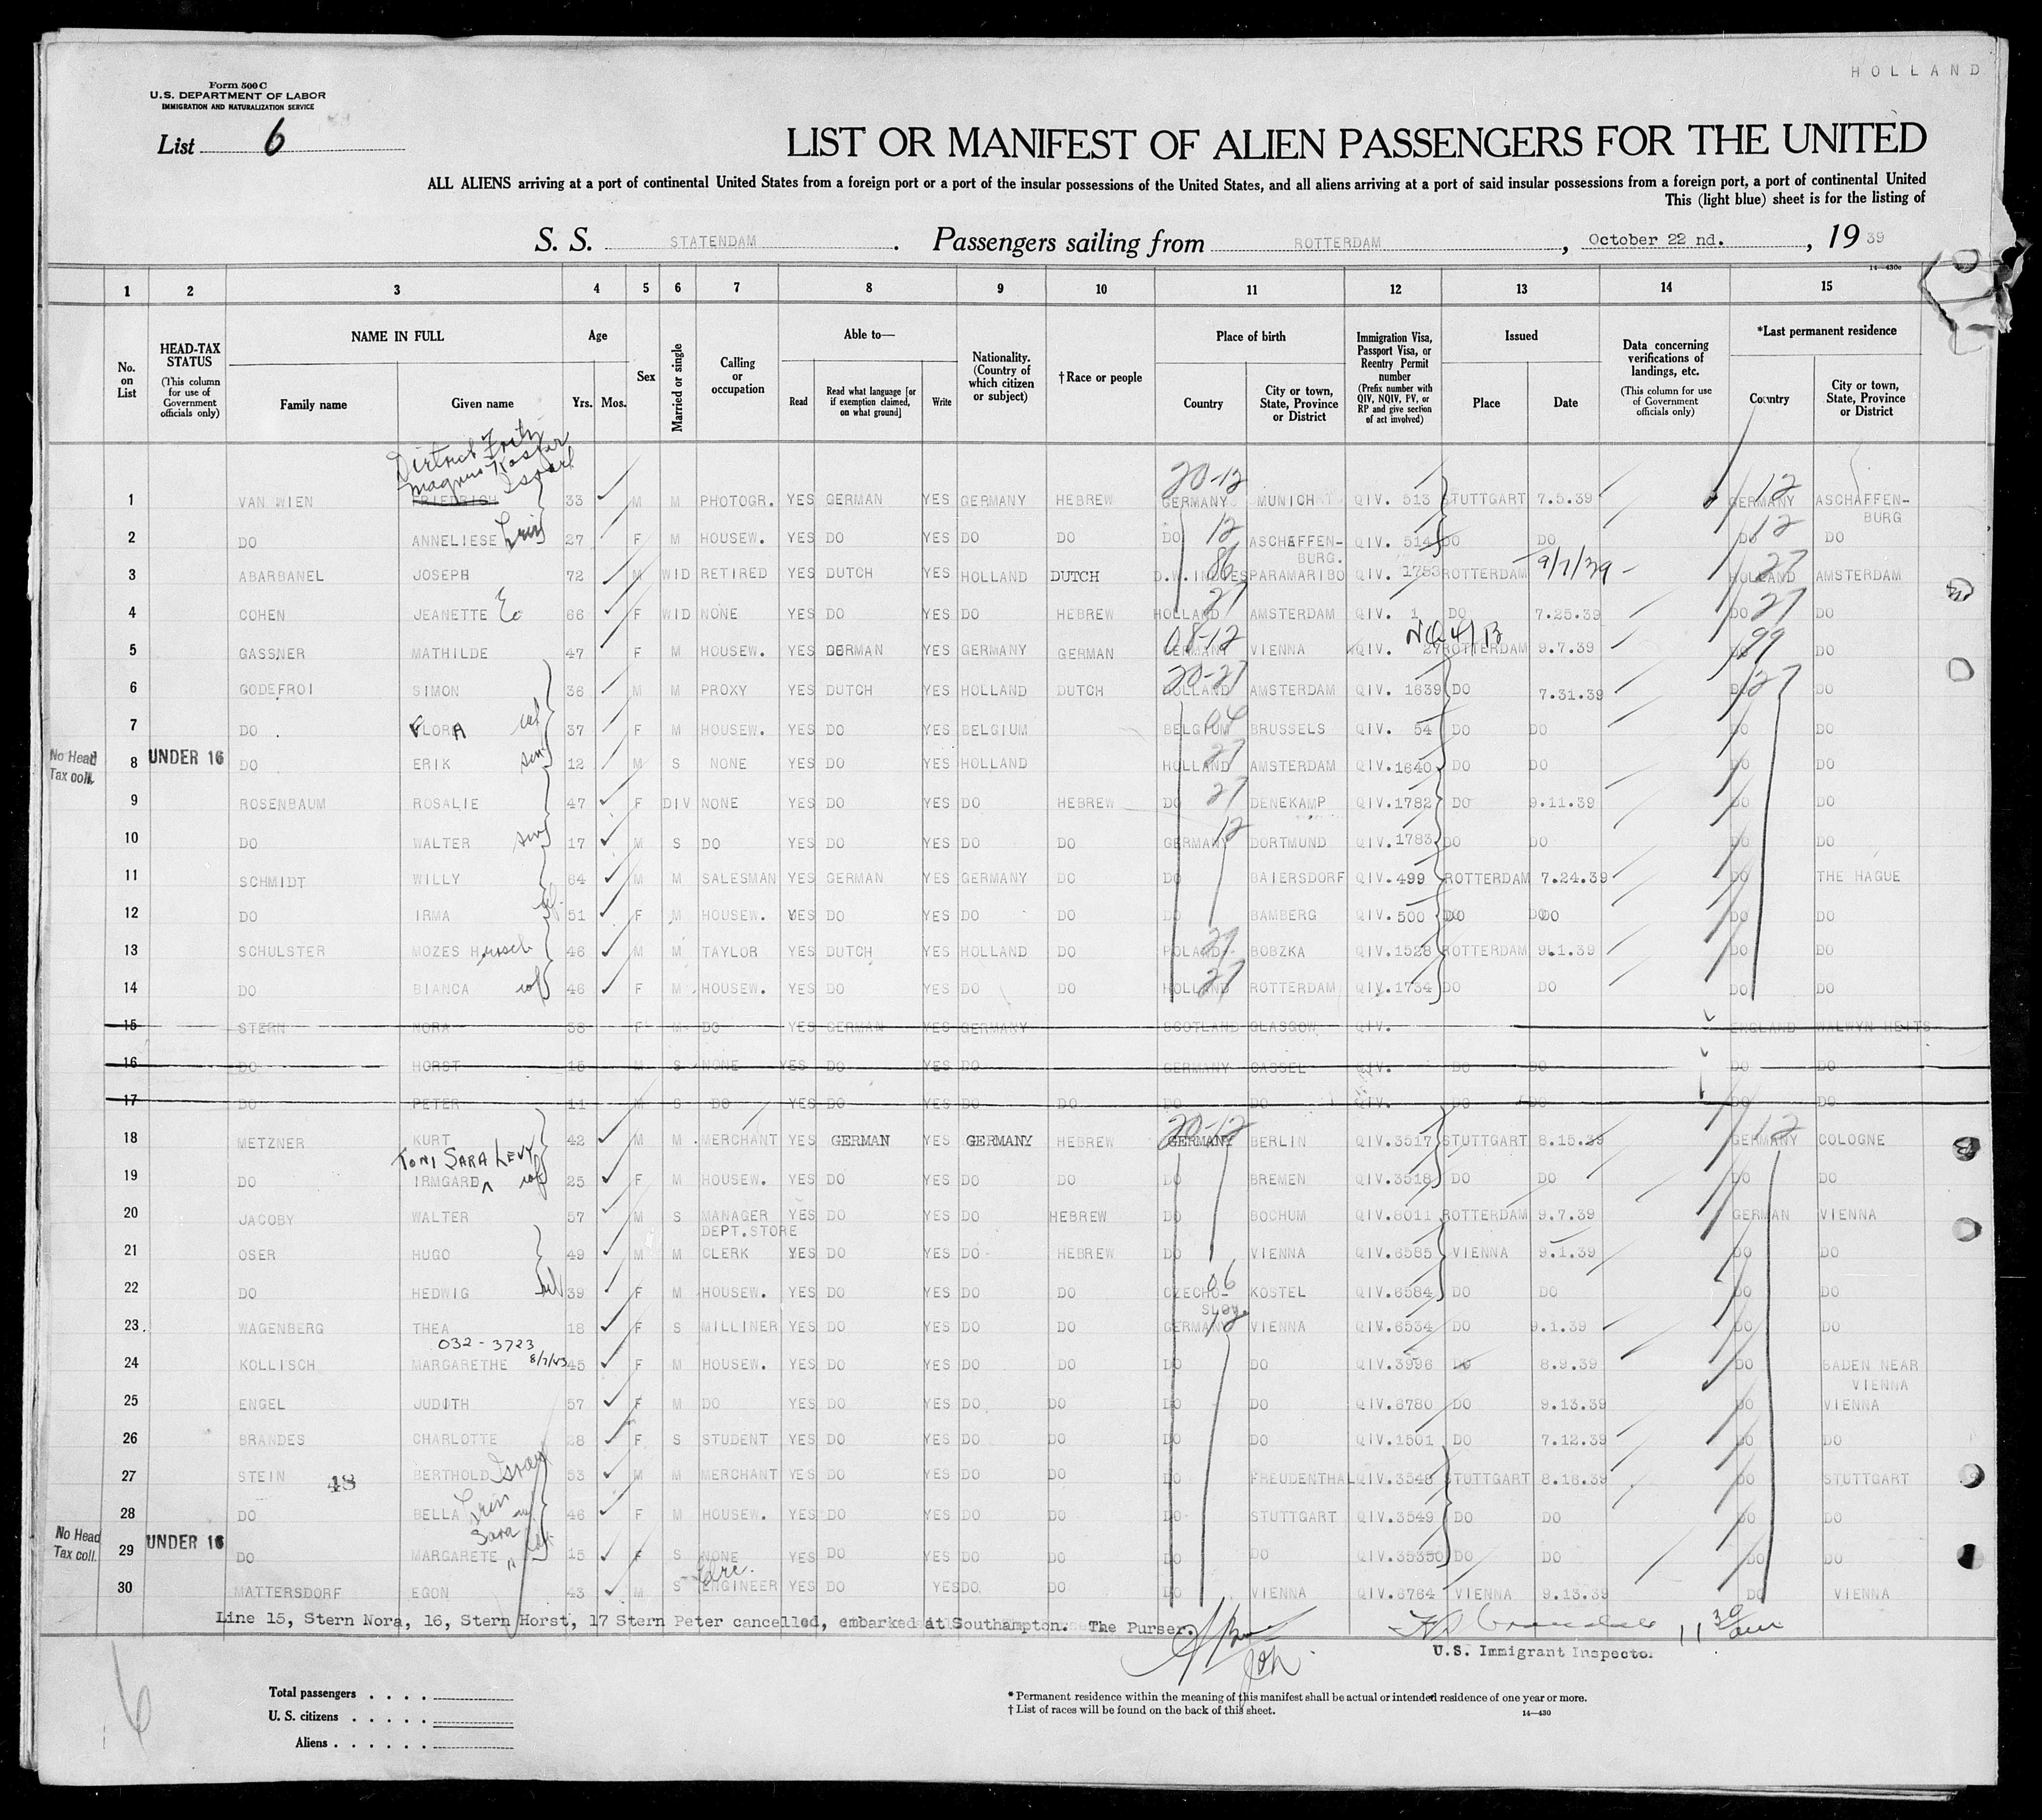 HOLLAND
Form 500 C
U.S. DEPARTMENT OF LABOR
IMMIGRATION AND NATURALIZATION SERVICE
List 6
LIST OR MANIFEST OF ALIEN PASSENGERS FOR THE UNITED
ALL ALIENS arriving at a port of continental United States from a foreign port or a port of the insular possessions of the United States, and all aliens arriving at a port of said insular possessions from a foreign port, a port of continental United
This (light blue) sheet is for the listing of
S. S. STATENDAM. Passengers sailing from ROTTERDAM, October 22 nd., 1939
14—430c
1 2 3 4 5 6 7 8 9 10 11 12 13 14 15
No. on List
HEAD-TAX STATUS (This column for use of Government officials only)
NAME IN FULL
Family name
Given name
Age
Yrs. Mos.
Sex
Married or single
Calling or occupation
Able to—
Read
Read what language [or if exemption claimed, on what ground]
Write
Nationality. (Country of which citizen or subject)
† Race or people
Place of birth
Country
City or town, State, Province or District
Immigration Visa, Passport Visa, or Reentry Permit number (Prefix number with QIV, NQIV, PV, or RP and give section of act involved)
Issued
Place
Date
Data concerning verifications of landings, etc. (This column for use of Government officials only)
*Last permanent residence
Country
City or town, State, Province or District
Magnus Israel
20-12 12
1 VAN WIEN FRIEDRICH 33 M M PHOTOGR. YES GERMAN YES GERMANY HEBREW GERMANY MUNICH QIV. 513 STUTTGART 7.5.39 GERMANY ASCHAFFENBURG
12 12
2 DO ANNELIESE 27 F M HOUSEW. YES DO YES DO DO DO ASCHAFFENBURG. QIV. 514 DO DO DO DO
86 27
3 ABARBANEL JOSEPH 72 M WID RETIRED YES DUTCH YES HOLLAND DUTCH D.W.INDIES PARAMARIBO QIV. 1753 ROTTERDAM 9/7/39 HOLLAND AMSTERDAM
27 27
4 COHEN JEANETTE 66 F WID NONE YES DO YES DO HEBREW HOLLAND AMSTERDAM QIV. 1 DO 7.25.39 DO DO
08-12 NQ 4/B 99
5 GASSNER MATHILDE 47 F M HOUSEW. YES GERMAN YES GERMANY GERMAN GERMANY VIENNA QIV. 27 ROTTERDAM 9.7.39 DO DO
20-27 27
6 GODEFROI SIMON 36 M M PROXY YES DUTCH YES HOLLAND DUTCH HOLLAND AMSTERDAM QIV. 1639 DO 7.31.39 DO DO
04
7 DO FLORA wf 37 F M HOUSEW. YES DO YES BELGIUM BELGIUM BRUSSELS QIV. 54 DO DO DO DO
No Head Tax coll. UNDER 16
27
8 DO ERIK son 12 M S NONE YES DO YES HOLLAND HOLLAND AMSTERDAM QIV.1640 DO DO DO DO
27
9 ROSENBAUM ROSALIE 47 F DIV NONE YES DO YES DO HEBREW DO DENEKAMP QIV.1782 DO 9.11.39 DO DO
12
10 DO WALTER son 17 M S DO YES DO YES DO DO GERMANY DORTMUND QIV.1783 DO DO DO DO
11 SCHMIDT WILLY 64 M M SALESMAN YES GERMAN YES GERMANY DO DO BAIERSDORF QIV.499 ROTTERDAM 7.24.39 DO THE HAGUE
12 DO IRMA wf. 51 F M HOUSEW. YES DO YES DO DO DO BAMBERG QIV.500 DO DO DO DO
27
13 SCHULSTER MOZES Hersch 46 M M TAYLOR YES DUTCH YES HOLLAND DO POLAND BOBZKA QIV.1528 ROTTERDAM 9.1.39 DO DO
27
14 DO BIANCA wf 46 F M HOUSEW. YES DO YES DO DO HOLLAND ROTTERDAM QIV.1734 DO DO DO DO
15 STERN NORA 38 F M DO YES GERMAN YES GERMANY SCOTLAND GLASGOW QIV. ENGLAND WALWYN HEITS
16 DO HORST 16 M S NONE YES DO YES DO GERMANY CASSEL QIV. DO DO DO DO
17 DO PETER 11 M S DO YES DO YES DO DO DO DO QIV. DO DO DO DO
20-12 12
18 METZNER KURT 42 M M MERCHANT YES GERMAN YES GERMANY HEBREW GERMANY BERLIN QIV.3517 STUTTGART 8.15.39 GERMANY COLOGNE
TONI SARA LEVY
19 DO IRMGARD wf 25 F M HOUSEW. YES DO YES DO DO DO BREMEN QIV.3518 DO DO DO DO
20 JACOBY WALTER 57 M S MANAGER DEPT.STORE YES DO YES DO HEBREW DO BOCHUM QIV.6011 ROTTERDAM 9.7.39 GERMAN VIENNA
21 OSER HUGO 49 M M CLERK YES DO YES DO HEBREW DO VIENNA QIV.6585 VIENNA 9.1.39 DO DO
06
22 DO HEDWIG wf 39 F M HOUSEW. YES DO YES DO DO CZECHO-SLOV. KOSTEL QIV.6584 DO DO DO DO
12
23 WAGENBERG THEA 18 F S MILLINER YES DO YES DO DO GERMANY VIENNA QIV.6534 DO 9.1.39 DO DO
032-3723 8/7/43
24 KOLLISCH MARGARETHE 45 F M HOUSEW. YES DO YES DO DO DO DO QIV.3996 DO 8.9.39 DO BADEN NEAR VIENNA
25 ENGEL JUDITH 57 F M DO YES DO YES DO DO DO DO QIV.6780 DO 9.13.39 DO VIENNA
26 BRANDES CHARLOTTE 28 F S STUDENT YES DO YES DO DO DO DO QIV.1501 DO 7.12.39 DO DO
27 STEIN 48 BERTHOLD Israel 53 M M MERCHANT YES DO YES DO DO DO FREUDENTHAL QIV.3548 STUTTGART 8.16.39 DO STUTTGART
28 DO BELLA 46 F M HOUSEW. YES DO YES DO DO DO STUTTGART QIV.3549 DO DO DO DO
No Head Tax coll. UNDER 16
Sara
29 DO MARGARETE 15 F S NONE YES DO YES DO DO DO DO QIV.35350 DO DO DO DO
Elec.
30 MATTERSDORF EGON 43 M S ENGINEER YES DO YES DO. DO DO VIENNA QIV.6764 VIENNA 9.13.39 DO VIENNA
Line 15, Stern Nora, 16, Stern Horst, 17 Stern Peter cancelled, embarked at Southampton. The Purser.
11 30 am
U.S. Immigrant Inspector.
6
Total passengers . . . .
U. S. citizens . . . . .
Aliens . . . . . .
* Permanent residence within the meaning of this manifest shall be actual or intended residence of one year or more.
† List of races will be found on the back of this sheet.
14—430